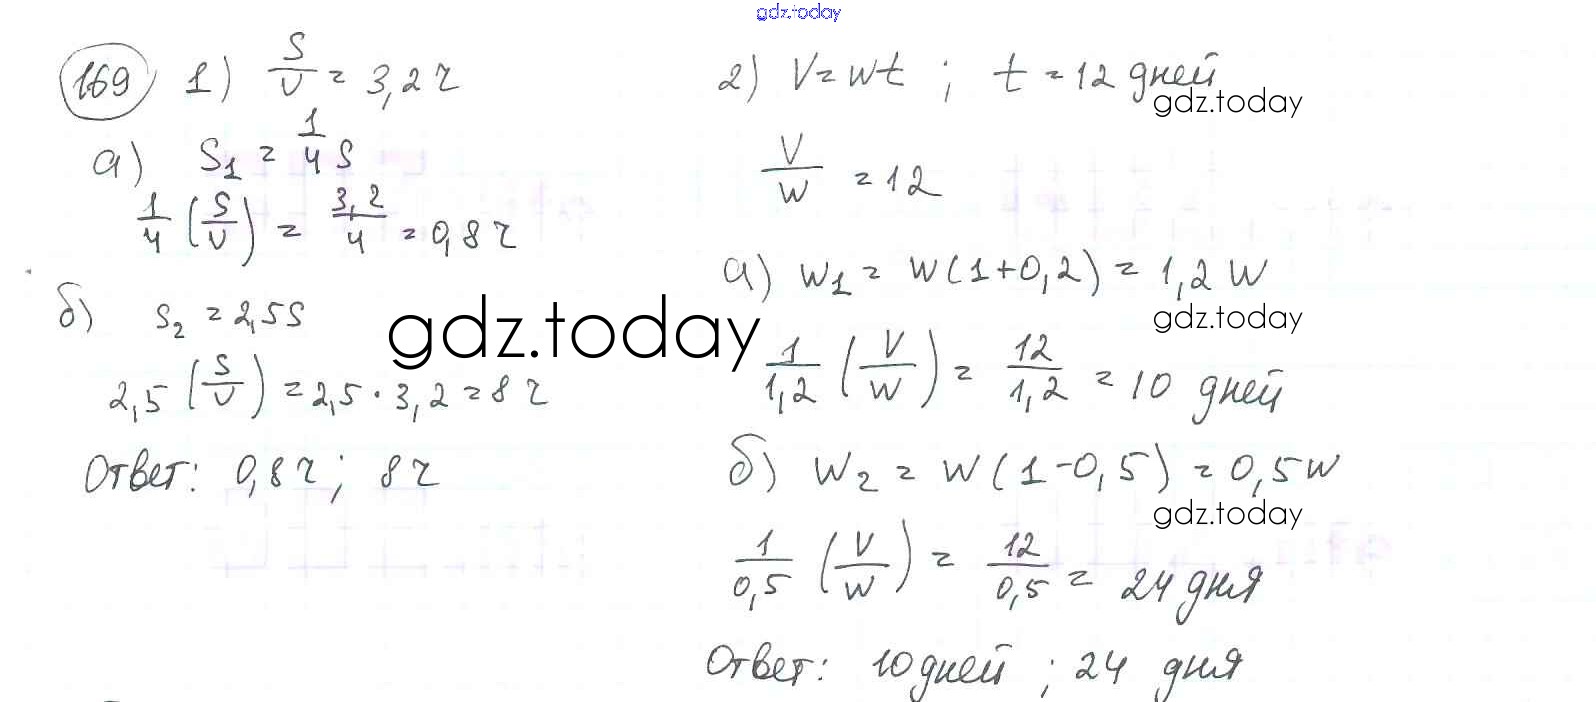 gdz.today
169 1) S/V = 3,2 ч
а) S₁ = 1/4 S
1/4 (S/V) = 3,2/4 = 0,8 ч
б) S₂ = 2,5S
2,5 (S/V) = 2,5 · 3,2 = 8 ч
Ответ: 0,8 ч; 8 ч
gdz.today
2) V = wt ; t = 12 дней
gdz.today
V/W = 12
а) W₁ = W(1+0,2) = 1,2 W
gdz.today
1/1,2 (V/W) = 12/1,2 = 10 дней
б) W₂ = W(1-0,5) = 0,5W
gdz.today
1/0,5 (V/W) = 12/0,5 = 24 дня
Ответ: 10 дней ; 24 дня